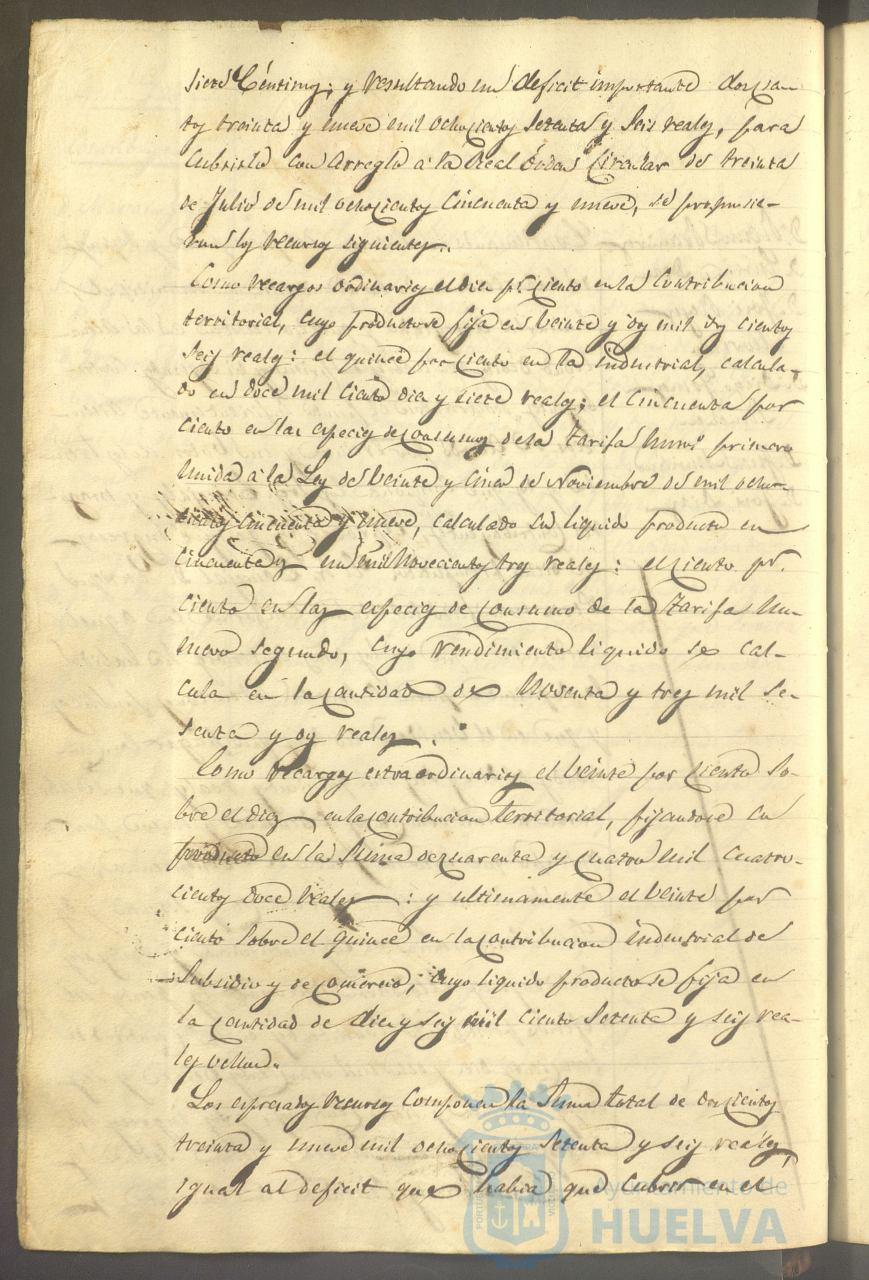 siete Céntimos; y resultando un deficit importante doscien-
tos treinta y nueve mil ochocientos setenta y seis reales, para
cubrirlo con arreglo a la Real órden Circular de treinta
de Julio de mil ochocientos cincuenta y nueve, se propusie-
ron los recursos siguientes.
Como recargos ordinarios el diez pr. ciento en la Contribucion
territorial, cuyo producto se fija en veinte y dos mil dos cientos
seis reales: el quince por ciento en la industrial, calcula-
do en doce mil ciento diez y siete reales; el cincuenta por
ciento en las especies de consumos de la tarifa numo. primero
unida a la Ley de veinte y cinco de Noviembre de mil ocho-
cientos cincuenta y nueve, calculado su liquido producto en
cincuenta y un mil novecientos tres reales: el ciento pr.
ciento en las especies de consumo de la tarifa nu-
mero segundo, cuyo rendimiento liquido se cal-
cula en la cantidad de noventa y tres mil se-
senta y dos reales.
Como recargos estraordinarios el veinte por ciento so-
bre el diez en la contribucion territorial, fijandose su
producto en la suma de cuarenta y cuatro mil cuatro-
cientos doce reales: y ultimamente el veinte por
ciento sobre el quince en la contribucion industrial de
Subsidio y de comercio, cuyo liquido producto se fija en
la cantidad de diez y seis mil ciento setenta y seis rea-
les vellon.
Los espresados recursos componen la suma total de doscientos
treinta y nueve mil ochocientos setenta y seis reales,
igual al deficit que habia que cubrir en el
Ayuntamiento de
HUELVA